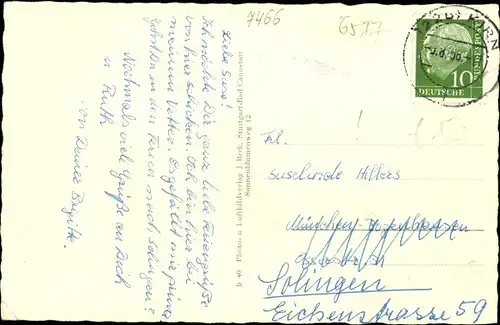 7466
6577
Liebe Susi!
Ich möchte Dir ganz liebe Feriengrüße
von hier schicken. Ich bin hier bei
meinem Vetter. Es gefällt mir prima.
Fährst Du in den Ferien nach Solingen?
Nochmals viele Grüße an Dich
u. Ruth
von Deiner Brigitte.
b 40 Photo- u. Luftbildverlag J. Beck, Stuttgart-Bad Cannstatt
10
DEUTSCHE
Frl.
Hilkers
München-
Solingen
Eichenstrasse 59